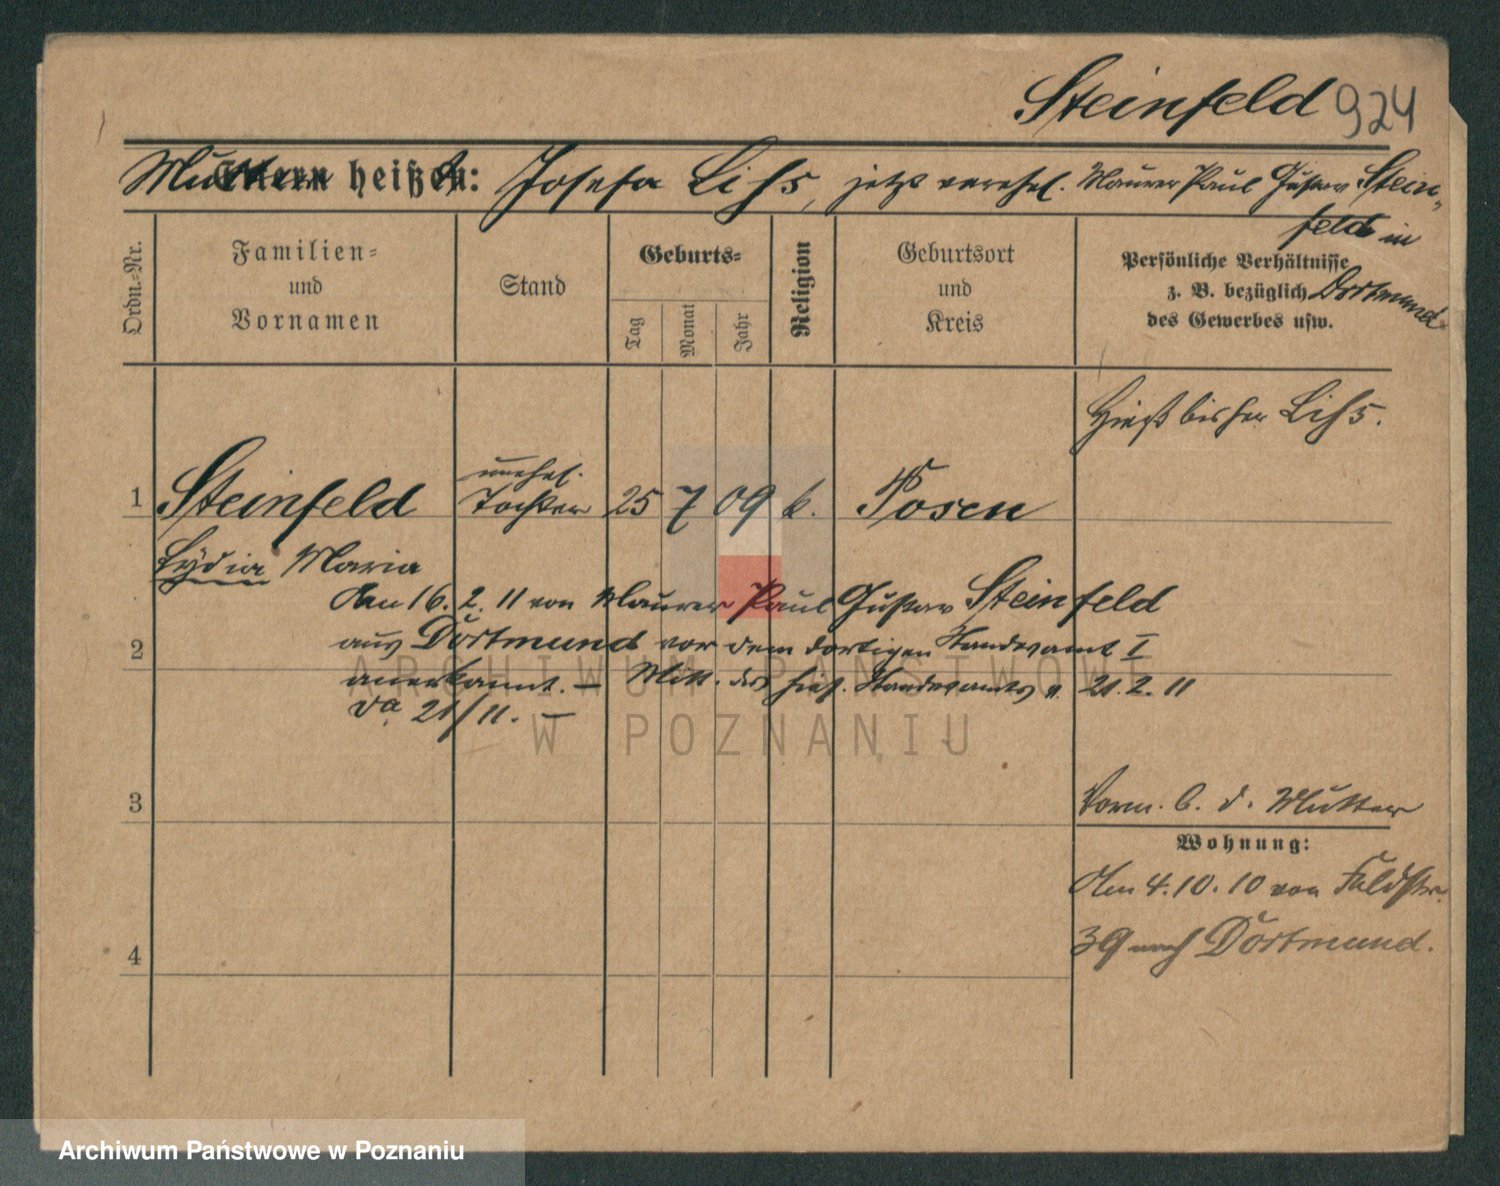 Steinfeld 924
Mutter heißt: Josefa Liss, jetzt verehel. Maurer Paul Gustav Stein-
feld in
Dortmund
Ordn.-Nr.
Familien-
und
Vornamen
Stand
Geburts-
Tag
Monat
Jahr
Religion
Geburtsort
und
Kreis
Persönliche Verhältnisse
z. B. bezüglich
des Gewerbes usw.
Hieß bisher Liss.
unehel.
1 Steinfeld Tochter 25 7 09 k. Posen
Lydia Maria
Am 16.2.11 von Maurer Paul Gustav Steinfeld
aus Dortmund vor dem dortigen Standesamt I
2
anerkannt. – Mitt. des hies. Standesamts v. 21.2.11
21/11. –
ARCHIWUM PAŃSTWOWE
W POZNANIU
3
Vorm. b. d. Mutter
Wohnung:
Am 4.10.10 von Feldstr.
39 nach Dortmund.
4
Archiwum Państwowe w Poznaniu